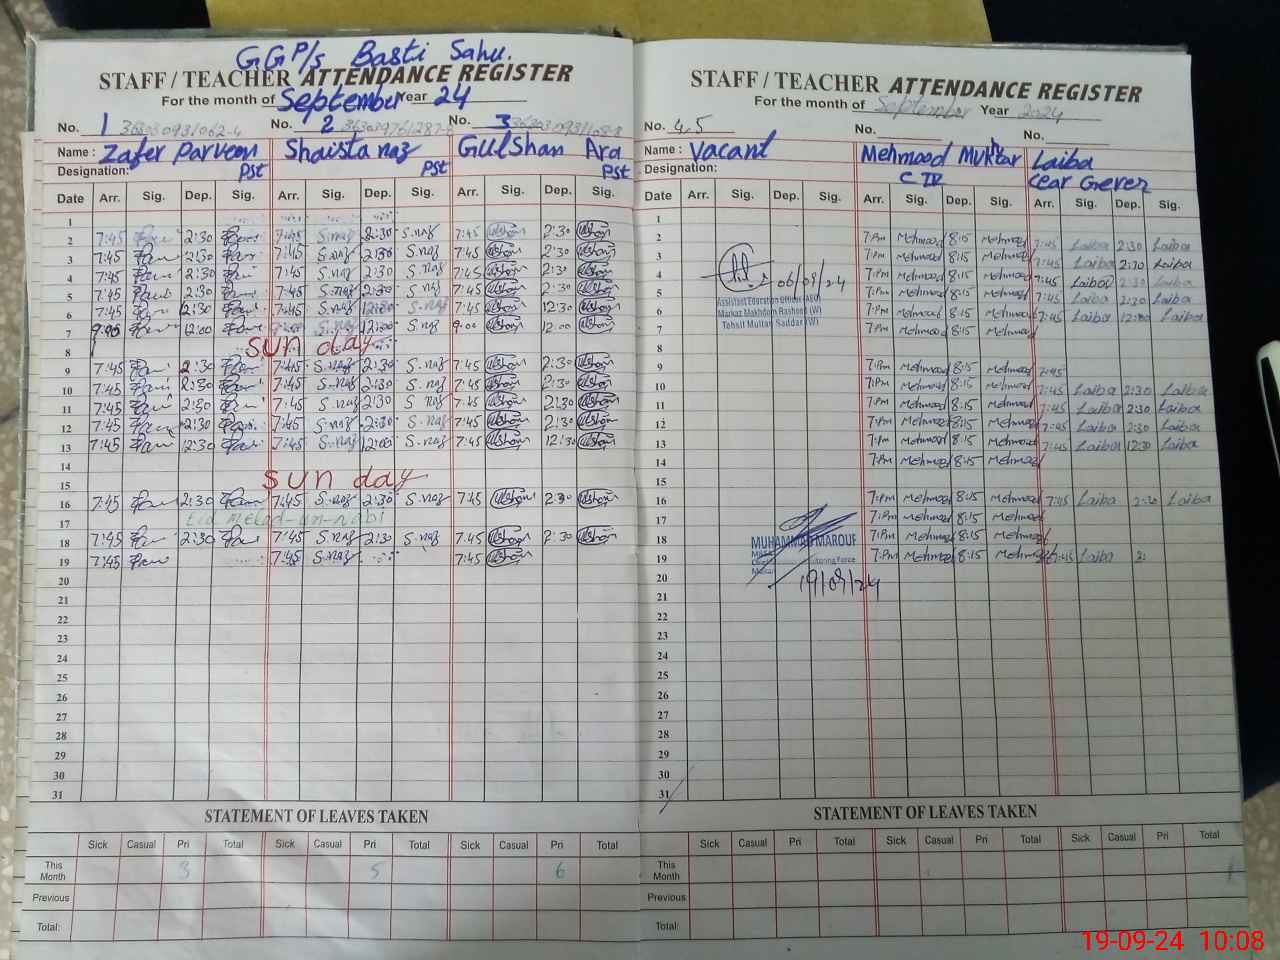 GGP/s Basti Sahu.
STAFF / TEACHER ATTENDANCE REGISTER
For the month of September Year 24
No. 1 No. 2 No. 3
Name : Zafer Parveen Shaista naz Gulshan Ara
Designation: PST PST PST
Date Arr. Sig. Dep. Sig. Arr. Sig. Dep. Sig. Arr. Sig. Dep. Sig.
1
2 7:45 2:30 7:45 S.naz 2:30 S.naz 7:45 2:30
3 7:45 2:30 7:45 S.naz 2:30 S.naz 7:45 2:30
4 7:45 2:30 7:45 S.naz 2:30 S.naz 7:45 2:30
5 7:45 2:30 7:45 S.naz 2:30 S.naz 7:45 2:30
6 7:45 12:30 7:45 S.naz S.naz 7:45 12:30
7 9:00 12:00 S.naz 12:00 S.naz 9:00 12:00
8 Sun day
9 7:45 2:30 7:45 S.naz 2:30 S.naz 7:45 2:30
10 7:45 2:30 7:45 S.naz 2:30 S.naz 7:45 2:30
11 7:45 2:30 7:45 S.naz 2:30 S.naz 7:45 2:30
12 7:45 2:30 7:45 S.naz 2:30 S.naz 7:45 2:30
13 7:45 12:30 7:45 S.naz 12:00 S.naz 7:45 12:30
14
15 Sun day
16 7:45 2:30 7:45 S.naz 2:30 S.naz 7:45 2:30
17 Eid Melad-un-nabi
18 7:45 2:30 7:45 S.naz 2:30 S.naz 7:45 2:30
19 7:45 7:45 S.naz 7:45
20
21
22
23
24
25
26
27
28
29
30
31
STATEMENT OF LEAVES TAKEN
Sick Casual Pri Total Sick Casual Pri Total Sick Casual Pri Total
This Month 3 5 6
Previous
Total:
STAFF / TEACHER ATTENDANCE REGISTER
For the month of September Year 2024
No. 4,5 No. No.
Name : Vacant Mehmood Muktar Laiba
Designation: C IV
Date Arr. Sig. Dep. Sig. Arr. Sig. Dep. Sig. Arr. Sig. Dep. Sig.
1
2 7:Pm Mehmood 8:15 Mehmood 7:45 Laiba 2:30 Laiba
3 7:Pm Mehmood 8:15 Mehmood 7:45 Laiba 2:30 Laiba
4 7:Pm Mehmood 8:15 Mehmood 7:45 Laiba 2:30 Laiba
5 7:Pm Mehmood 8:15 Mehmood 7:45 Laiba 2:30 Laiba
06/09/24
Assistant Education Officer (AEO)
Markaz Makhdom Rasheed (W)
Tehsil Multan Saddar (W)
6 7:Pm Mehmood 8:15 Mehmood 7:45 Laiba Laiba
7 7:Pm Mehmood 8:15 Mehmood
8
9 7:Pm Mehmood 8:15 Mehmood 7:45
10 7:Pm Mehmood 8:15 Mehmood 7:45 Laiba 2:30 Laiba
11 7:Pm Mehmood 8:15 Mehmood 7:45 Laiba 2:30 Laiba
12 7:Pm Mehmood 8:15 Mehmood 7:45 Laiba 2:30 Laiba
13 7:Pm Mehmood 8:15 Mehmood 7:45 Laiba 12:30 Laiba
14 7:Pm Mehmood 8:15 Mehmood
15
16 7:Pm Mehmood 8:15 Mehmood 7:45 Laiba 2:30 Laiba
17 7:Pm Mehmood 8:15 Mehmood
18 7:Pm Mehmood 8:15 Mehmood
MUHAMMAD MAROUF
19 7:Pm Mehmood 8:15 Mehmood 7:45 Laiba 2:
20
19/09/24
21
22
23
24
25
26
27
28
29
30
31
STATEMENT OF LEAVES TAKEN
Sick Casual Pri Total Sick Casual Pri Total Sick Casual Pri Total
This Month 1
Previous
Total:
19-09-24 10:08